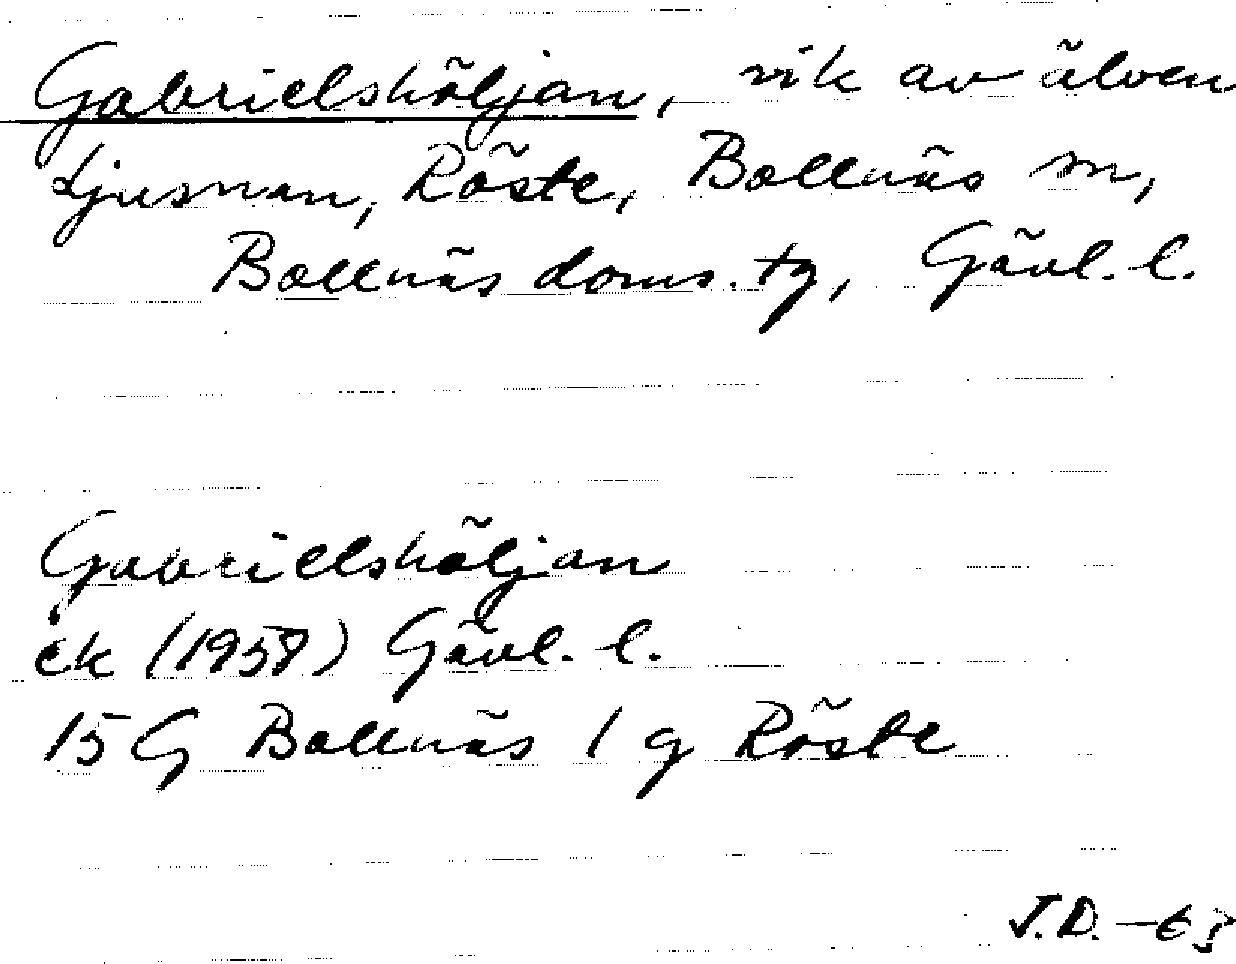 Gabrielshöljan, vik av älven
Ljusnan, Röste, Bollnäs sn,
Bollnäs doms. tg, Gävl. l.
Gabrielshöljan
ek (1958) Gävl. l.
15 G Bollnäs 1 g Röste
J.D. -63